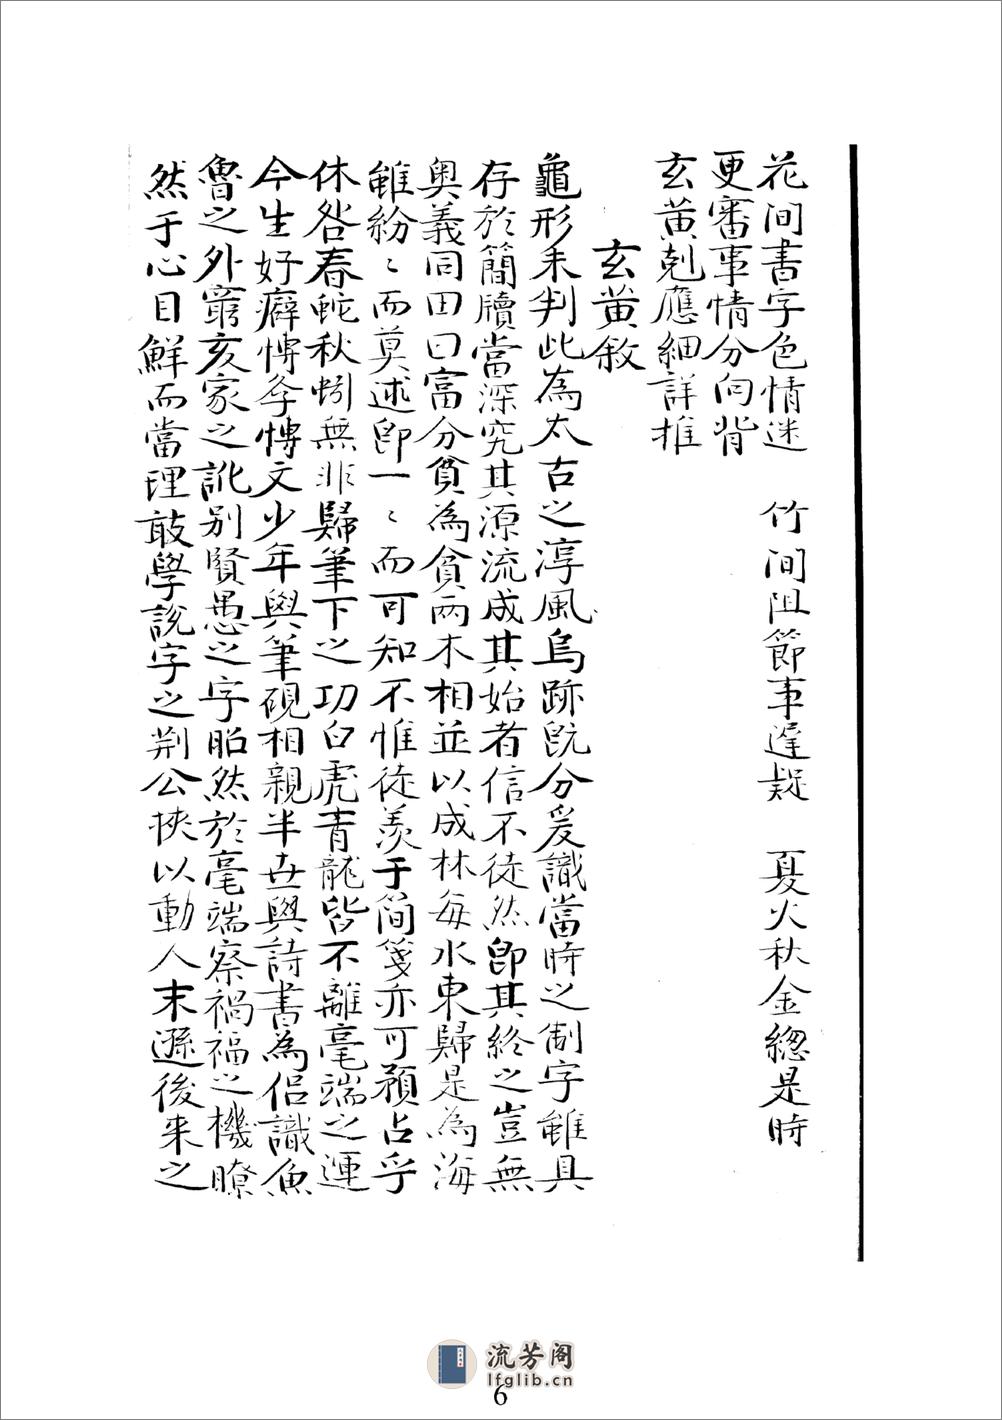 花间書字色情迷　竹间阻節事遲疑　夏火秋金總是時
更審事情分向背
玄黄剋應細詳推
玄黄敘
龜形未判此為太古之淳風鳥跡旣分爰識當時之制字雖具
存於簡牘當深究其源流成其始者信不徒然卽其終之豈無
奥義同田曰富分貧為貧兩木相並以成林每水東歸是為海
雖紛〻而莫述卽一〻而可知不惟徒羡于简箋亦可預占乎
休咎春蛇秋蚓無非歸筆下之功白虎青龍皆不離毫端之運
今生好癖愽孝愽文少年與筆硯相親半世與詩書為侣識魚
魯之外窮亥家之訛别賢愚之字昭然於毫端察禍福之機瞭
然于心目鮮而當理敢學説字之荆公挾以動人末遜後来之
流芳阁
lfglib.cn
6